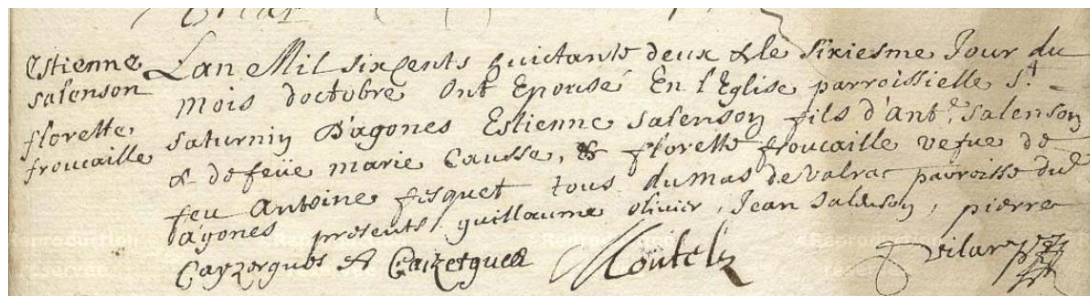 Estienne
salenson
florette
froucaille
Lan Mil sixcents huictante deux & le sixiesme Jour du
mois doctobre Ont Epousé En l'Eglise parroissielle S.t
saturnin D'agones Estienne salenson fils d'Ant.e salenson
& de feüe marie Causse, & florette froucaille vefue de
feu Antoine fisquet tous du mas de valrac parroisse dud.
d'agones presents guillaume olivier, Jean salenson, pierre
Cayzergues A Caizergues
vilar